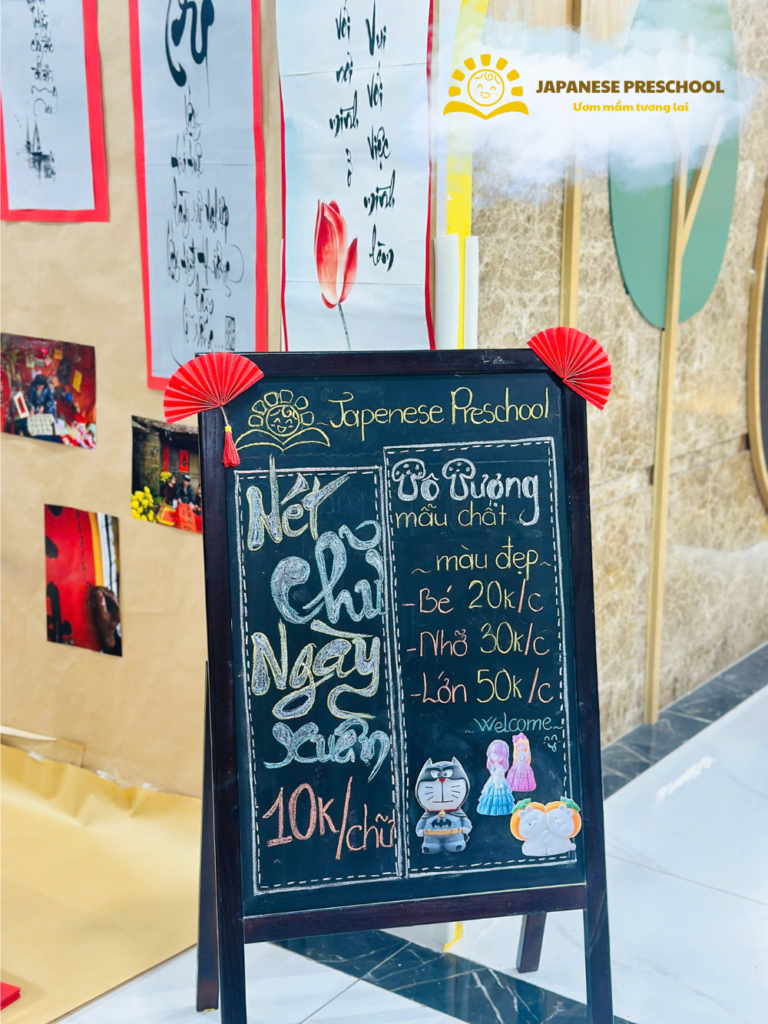 JAPANESE PRESCHOOL
Ươm mầm tương lai
Vui
với
việc
mình
làm
với
nơi
mình
ở
Japenese Preschool
Nét
Chữ
Ngày
xuân
10K/chữ
Tô Tượng
mẫu chất
~ màu đẹp ~
-Bé 20K/c
-Nhỡ 30K/c
-Lớn 50K/c
~Welcome~